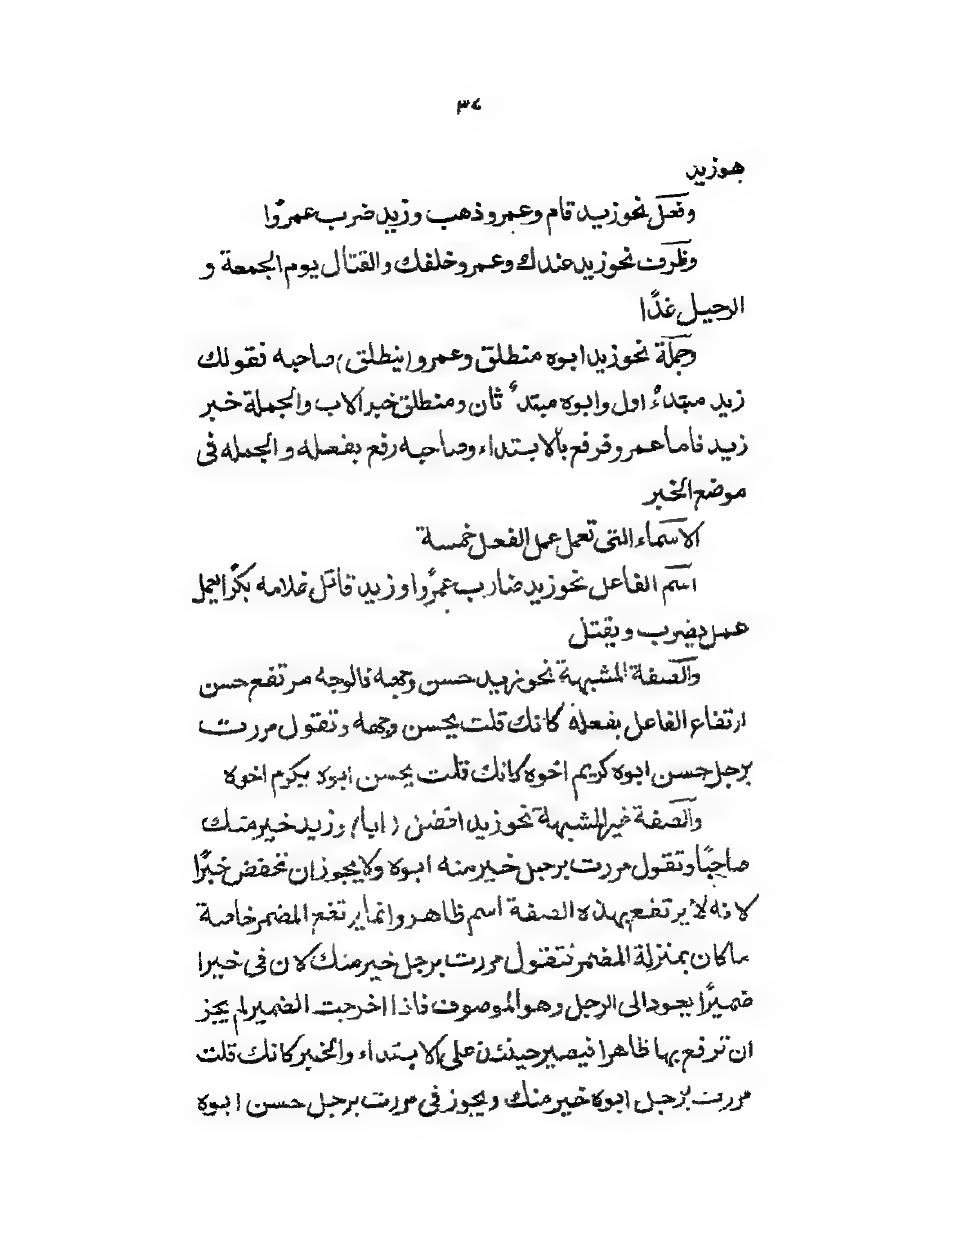 ٣٤
هو زيد
وفعل نحو زيد قام وعمرو ذهب وزيد ضرب عمرًوا
وظرف نحو زيد عندك وعمرو خلفك والقتال يوم الجمعة و
الرحيل غدًا
وجملة نحو زيد ابوه منطلق وعمرو (ينطلق) صاحبه فقولك
زيد مبتدءٌ اول وابوه مبتدءٌ ثان ومنطلق خبر الاب والجملة خبر
زيد فاما عمرو فرفع بالابتداء وصاحبه رفع بفعله والجمله فى
موضع الخبر
الاسماء التى تعمل عمل الفعل خمسة
اسم الفاعل نحو زيد ضارب عمرًوا وزيد قاتل غلامه بكرًا يعمل
عمل يضرب ويقتل
والصفة المشبهة نحو زيد حسن وجهه فالوجه مرتفع حسن
ارتفاع الفاعل بفعله كانك قلت يحسن وجهه وتقول مررت
برجل حسن ابوه كريم اخوه كانك قلت يحسن ابوه يكرم اخوه
والصفة غير المشبهة نحو زيد افضل (ابا) وزيد خير منك
صاحبًا وتقول مررت برجل خير منه ابوه ولا يجوز ان تخفض خبرًا
لانه لا يرتفع بهذه الصفة اسم ظاهر وانما يرتفع المضمر خاصة
ما كان بمنزلة المضمر فتقول مررت برجل خير منك لان فى خيرا
ضميرًا يعود الى الرجل وهو الموصوف فاذا اخرجت الضمير لم يجز
ان ترفع بها ظاهرا فيصير حينئذ على الابتداء والخبر كانك قلت
مررت برجل ابوه خير منك ويجوز فى مررت برجل حسن ابوه